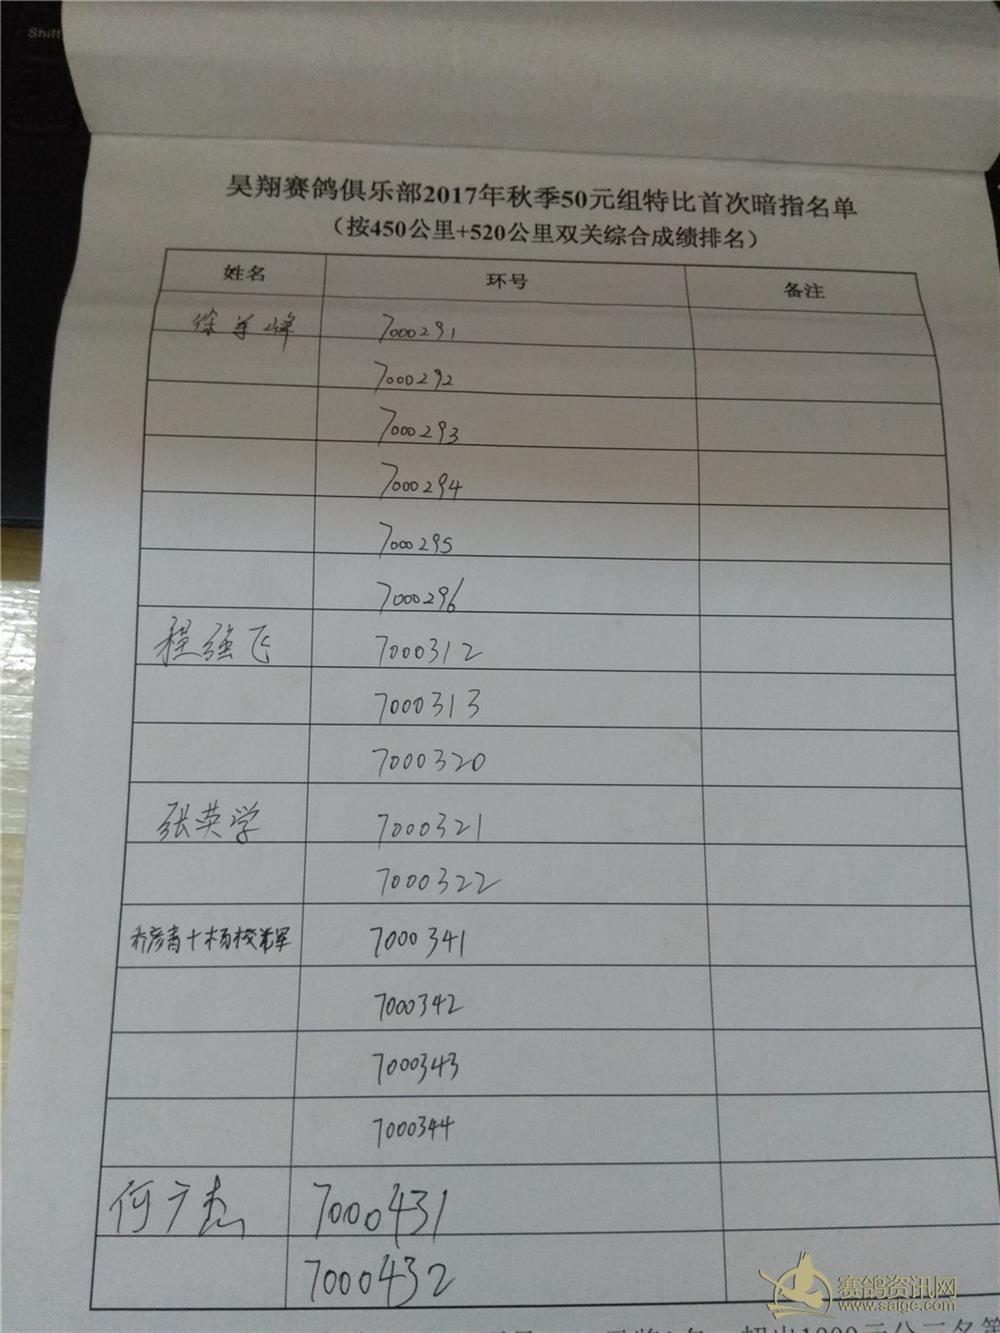 Shift
昊翔赛鸽俱乐部2017年秋季50元组特比首次暗指名单
（按450公里+520公里双关综合成绩排名）
姓名 环号 备注
徐 峰 7000291
7000292
7000293
7000294
7000295
7000296
程强飞 7000312
7000313
7000320
张英学 7000321
7000322
乔彦青+杨校 军 7000341
7000342
7000343
7000344
何广杰 7000431
7000432
赛鸽资讯网
www.saigc.com